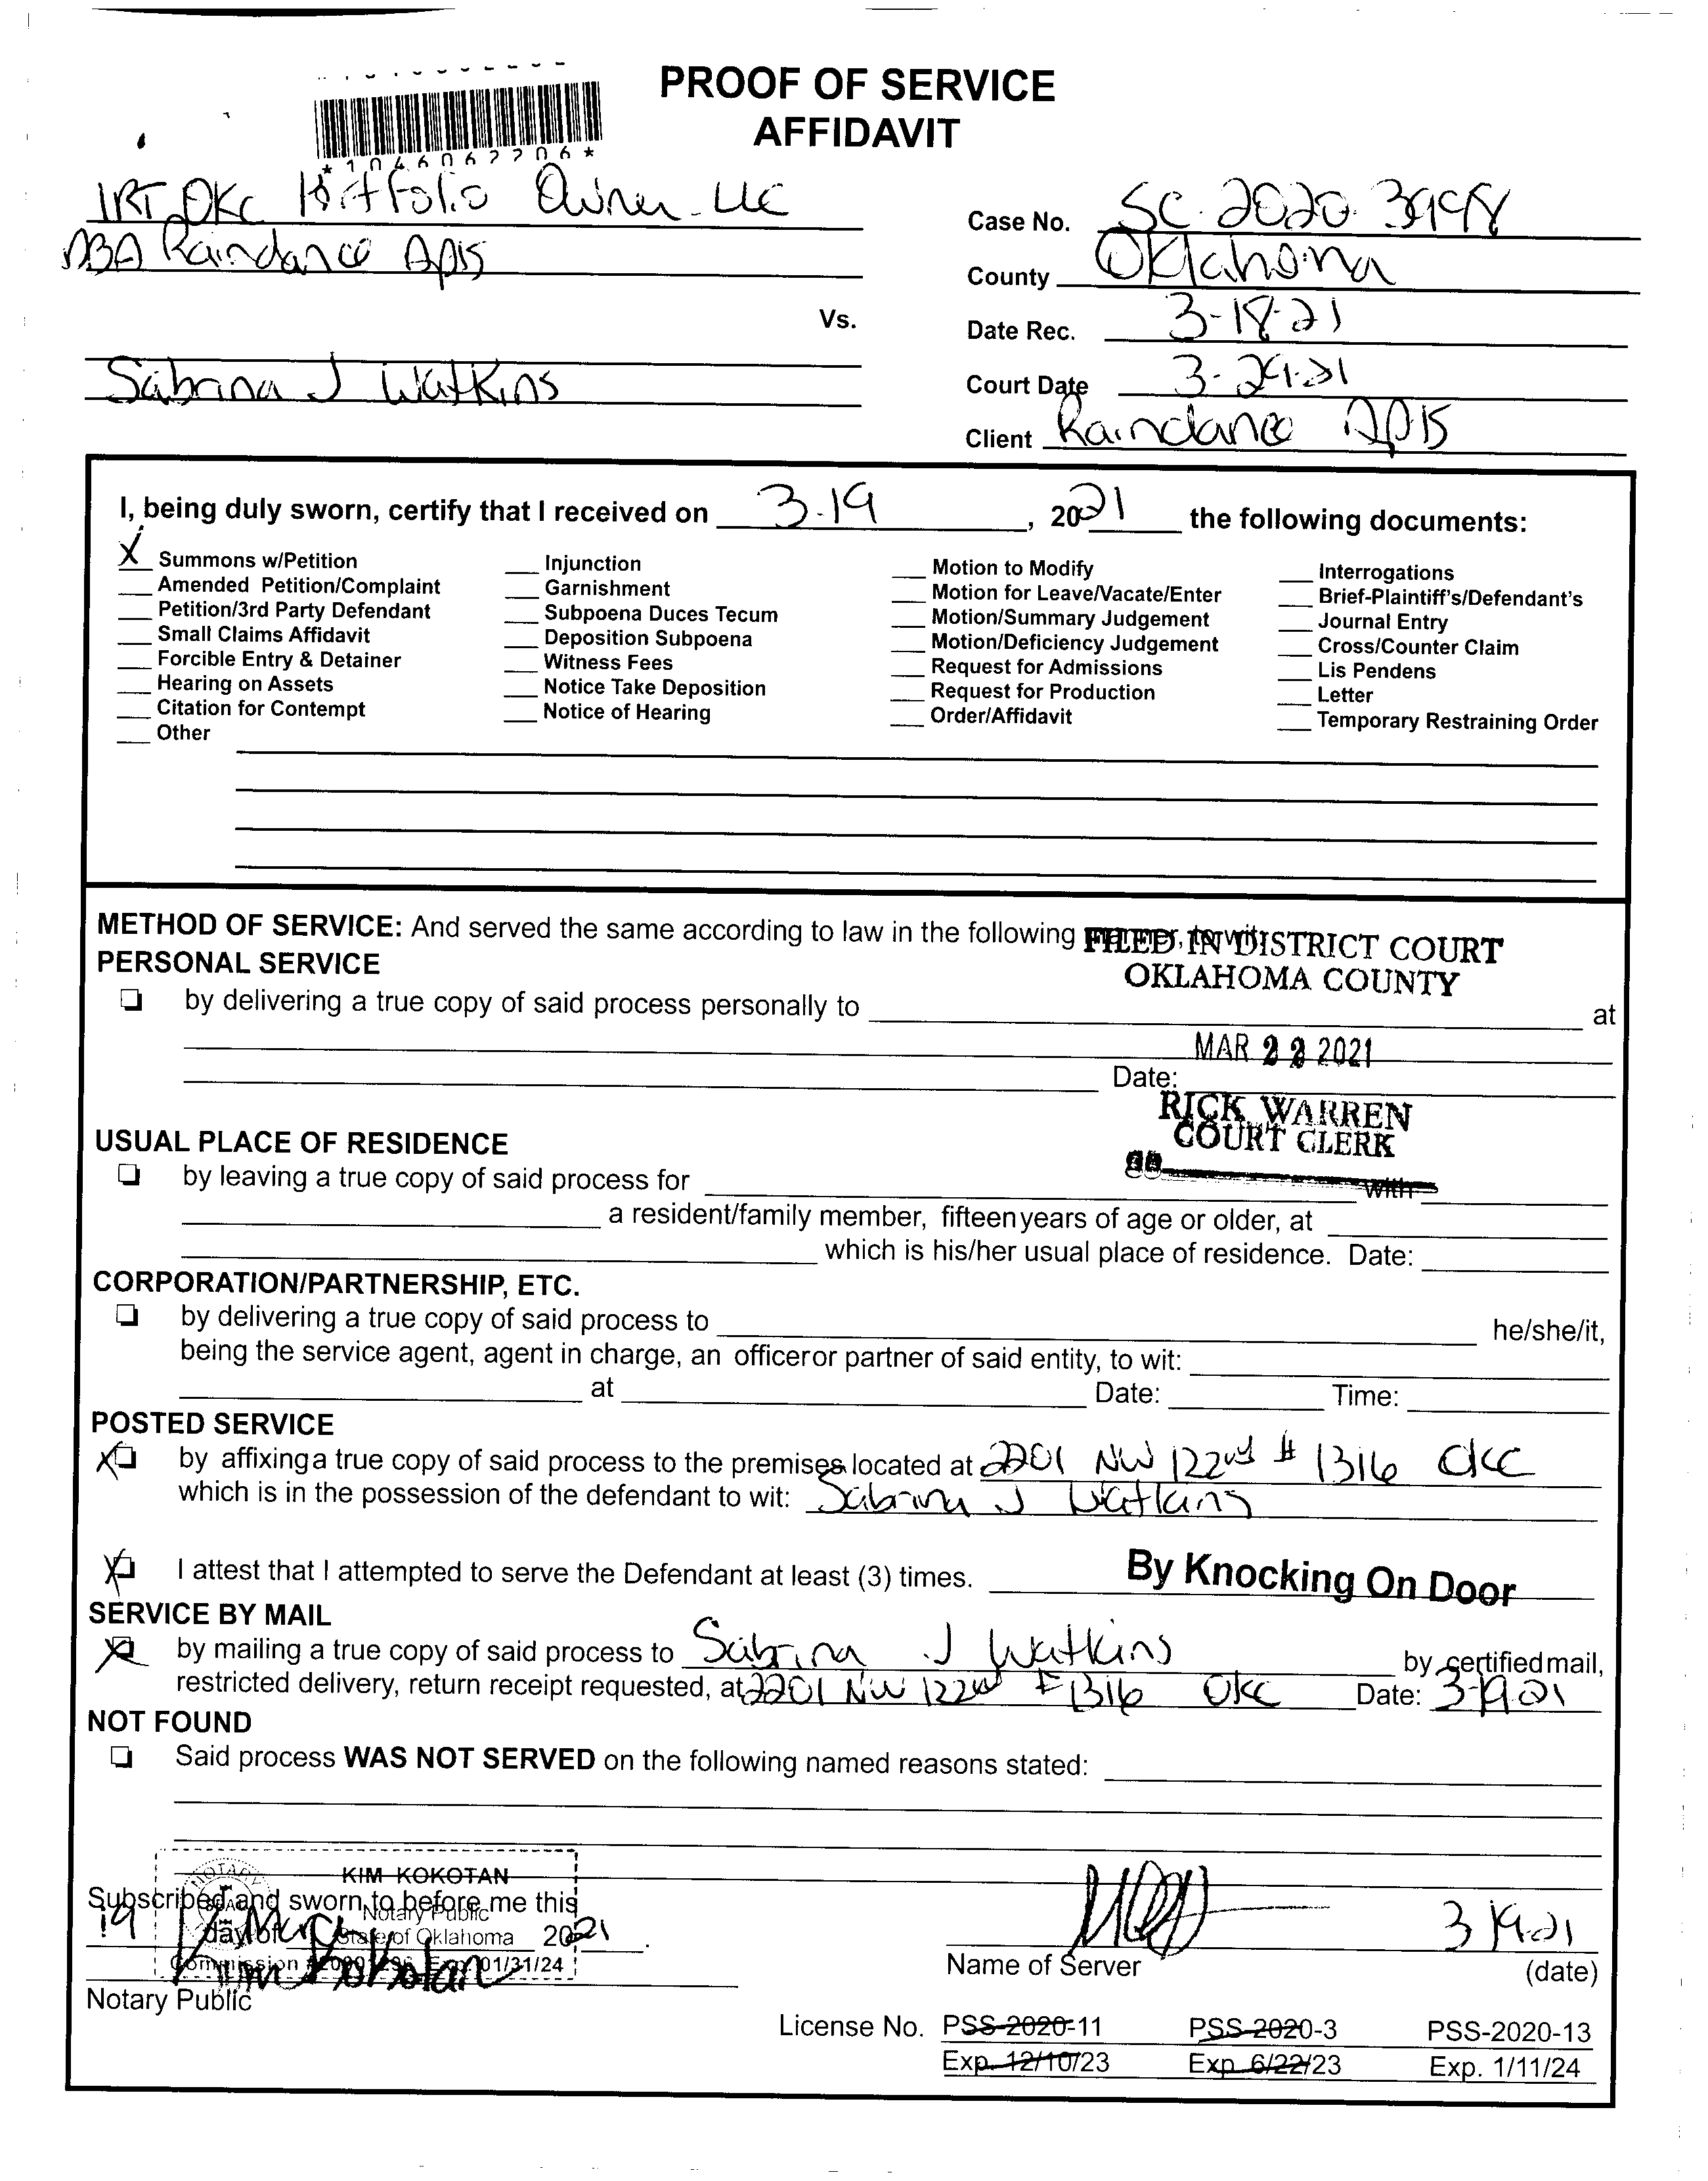 PROOF OF SERVICE
AFFIDAVIT
*1046062206*
IRT OKC Portfolio Owner LLC
DBA Raindance Apts
Vs.
Sabrina J Watkins
Case No. SC-2020-3998
County Oklahoma
Date Rec. 3-18-21
Court Date 3-29-21
Client Raindance Apts
I, being duly sworn, certify that I received on 3-19, 2021 the following documents:
X Summons w/Petition
Amended Petition/Complaint
Petition/3rd Party Defendant
Small Claims Affidavit
Forcible Entry & Detainer
Hearing on Assets
Citation for Contempt
Other
Injunction
Garnishment
Subpoena Duces Tecum
Deposition Subpoena
Witness Fees
Notice Take Deposition
Notice of Hearing
Motion to Modify
Motion for Leave/Vacate/Enter
Motion/Summary Judgement
Motion/Deficiency Judgement
Request for Admissions
Request for Production
Order/Affidavit
Interrogations
Brief-Plaintiff's/Defendant's
Journal Entry
Cross/Counter Claim
Lis Pendens
Letter
Temporary Restraining Order
METHOD OF SERVICE: And served the same according to law in the following manner, to wit:
FILED IN DISTRICT COURT
OKLAHOMA COUNTY
PERSONAL SERVICE
by delivering a true copy of said process personally to at
MAR 22 2021
Date:
RICK WARREN
COURT CLERK
USUAL PLACE OF RESIDENCE
by leaving a true copy of said process for with
a resident/family member, fifteen years of age or older, at
which is his/her usual place of residence. Date:
CORPORATION/PARTNERSHIP, ETC.
by delivering a true copy of said process to he/she/it,
being the service agent, agent in charge, an officer or partner of said entity, to wit:
at Date: Time:
POSTED SERVICE
X by affixing a true copy of said process to the premises located at 2201 NW 122nd # 1316 OKC
which is in the possession of the defendant to wit: Sabrina J Watkins
X I attest that I attempted to serve the Defendant at least (3) times. By Knocking On Door
SERVICE BY MAIL
X by mailing a true copy of said process to Sabrina J Watkins by certified mail,
restricted delivery, return receipt requested, at 2201 NW 122nd # 1316 OKC Date: 3-19-21
NOT FOUND
Said process WAS NOT SERVED on the following named reasons stated:
KIM KOKOTAN
Notary Public
State of Oklahoma
Exp. 01/31/24
Subscribed and sworn to before me this
19 day of March 2021
Kim Kokotan
Notary Public
Name of Server
3-19-21
(date)
License No. PSS-2020-11 PSS-2020-3 PSS-2020-13
Exp. 12/10/23 Exp. 6/22/23 Exp. 1/11/24